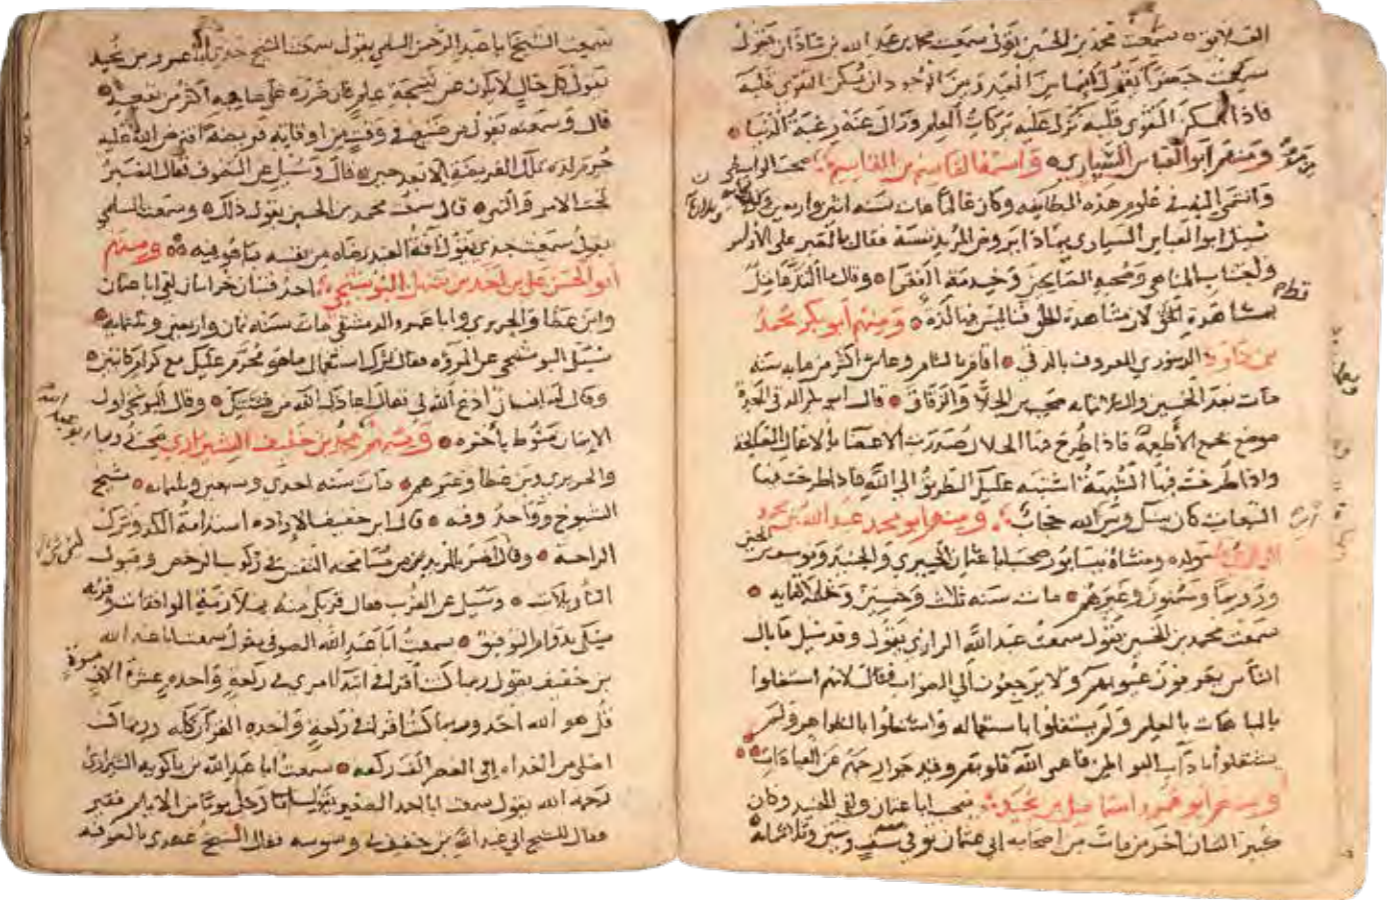 سمعت محمد بن الحسين يقول سمعت محمد بن عبد الله بن شاذان يقول
سمعت جعفرا يقول
فاذا سكن التقوى قلبه نزل عليه بركات العلم وزال عنه رغبة الدنيا
ومنهم ابو العباس السياري واسمه القاسم بن القاسم صحب الواسطي
وانتمى اليه في علوم هذه الطايفة وكان عالما مات سنة اثنين واربعين وثلثمايه
سيل ابو العباس السياري بماذا يروض المريد نفسه فقال بالصبر على الاوامر
واجتناب المناهي وصحبة الصالحين وخدمة الفقرا وقال ما التذ عاقل
قط
بمشاهدة الحق لان مشاهدة الحق فنا ليس فيه لذة ومنهم ابو بكر محمد
بن داود الدينوري المعروف بالدقي اقام بالشام وعاش اكثر من مايه سنه
مات بعد الخمسين والثلثمايه صحب بن الجلا والزقاق قال ابو بكر الدقي المعدة
موضع يجمع الأطعمة فاذا طرحت فيها الحلال صدرت الاعضا بالاعمال الصالحة
واذا طرحت فيها الشبهة اشتبه عليك الطريق الى الله فاذا طرحت فيها
التبعات كان بينك وبين الله حجاب ومنهم ابو محمد عبد الله بن محمد
الرازي مولده ومنشاه نيسابور صحب ابا عثمان الحيري والجنيد ويوسف بن
الحسين
ورويما وسمنون وغيرهم مات سنه ثلاث وخمسين وثلثمايه
سمعت محمد بن الحسين يقول سمعت عبد الله الرازي يقول وقد سيل ما بال
الناس يعرفون عيوبهم ولا يرجعون الى الصواب فقال لانهم اشتغلوا
بالمباهات بالعلم ولم يشتغلوا باستعماله واشتغلوا بالظواهر ولم
يشتغلوا بآداب البواطن فاعمى الله قلوبهم وقيد جوارحهم عن العبادات
ومنهم ابو عمرو اسماعيل بن نجيد صحب ابا عثمان ولقي الجنيد وكان
كبير الشان آخر من مات من اصحاب ابي عثمان توفي بمكة سنه ست وستين وثلاثمايه
سمعت الشيخ ابا عبد الرحمن السلمي يقول سمعت الشيخ جدي ابا عمرو بن نجيد
يقول كل حال لا يكون عن نتيجة علم فان ضرره على صاحبه اكثر من نفعه
قال وسمعته يقول من ضيع في وقت من اوقاته فريضة افترض الله عليه
حرم لذة تلك الفريضة الا بعد حين قال وسئل عن التصوف فقال الصبر
تحت الامر والنهي قال سمعت محمد بن الحسين يقول ذلك وسمعت السلمي
يقول سمعت جدي يقول آفة العبد رضاه من نفسه بما هو فيه ومنهم
ابو الحسن علي بن احمد بن سهل البوشنجي احد فتيان خراسان لقي ابا عثمان
وابن عطا والجريري وابا عمرو الدمشقي مات سنه ثمان واربعين وثلثمايه
سيل البوشنجي عن المروه فقال ترك استعمال ما هو محرم عليك مع كرام كاتبين
وقال له انسان ادع الله لي فقال اعاذك الله من فتنتك وقال البوشنجي اول
الايمان منوط بآخره ومنهم محمد بن خفيف الشيرازي صحب رويما
ابو عبد الله
والجريري وبن عطا وغيرهم مات سنه احدى وسبعين وثلثمايه شيخ
الشيوخ وواحد وقته قال ابن خفيف الارادة استدامة الكد وترك
الراحة وقال ليس شي اضر بالمريد من مسامحة النفس في ركوب الرخص وقبول
التأويلات وسئل عن القرب فقال قربك منه بملازمة الموافقات وقربه
منك بدوام التوفيق سمعت ابا عبد الله الصوفي يقول سمعت ابا عبد الله
بن خفيف يقول ربما كنت أقرا في ابتدا امري في ركعة واحدة عشرة الاف
مرة
قل هو الله احد وربما كنت اقرا في ركعة واحده القرآن كله وربما كنت
اصلي من الغداه الى العصر الف ركعه سمعت ابا عبد الله بن باكويه الشيرازي
رحمه الله يقول سمعت ابا احمد الصغير يقول دخل يوما من الايام فقير
فقال للشيخ ابي عبد الله بن خفيف بي وسوسه فقال الشيخ عهدي بالصوفيه